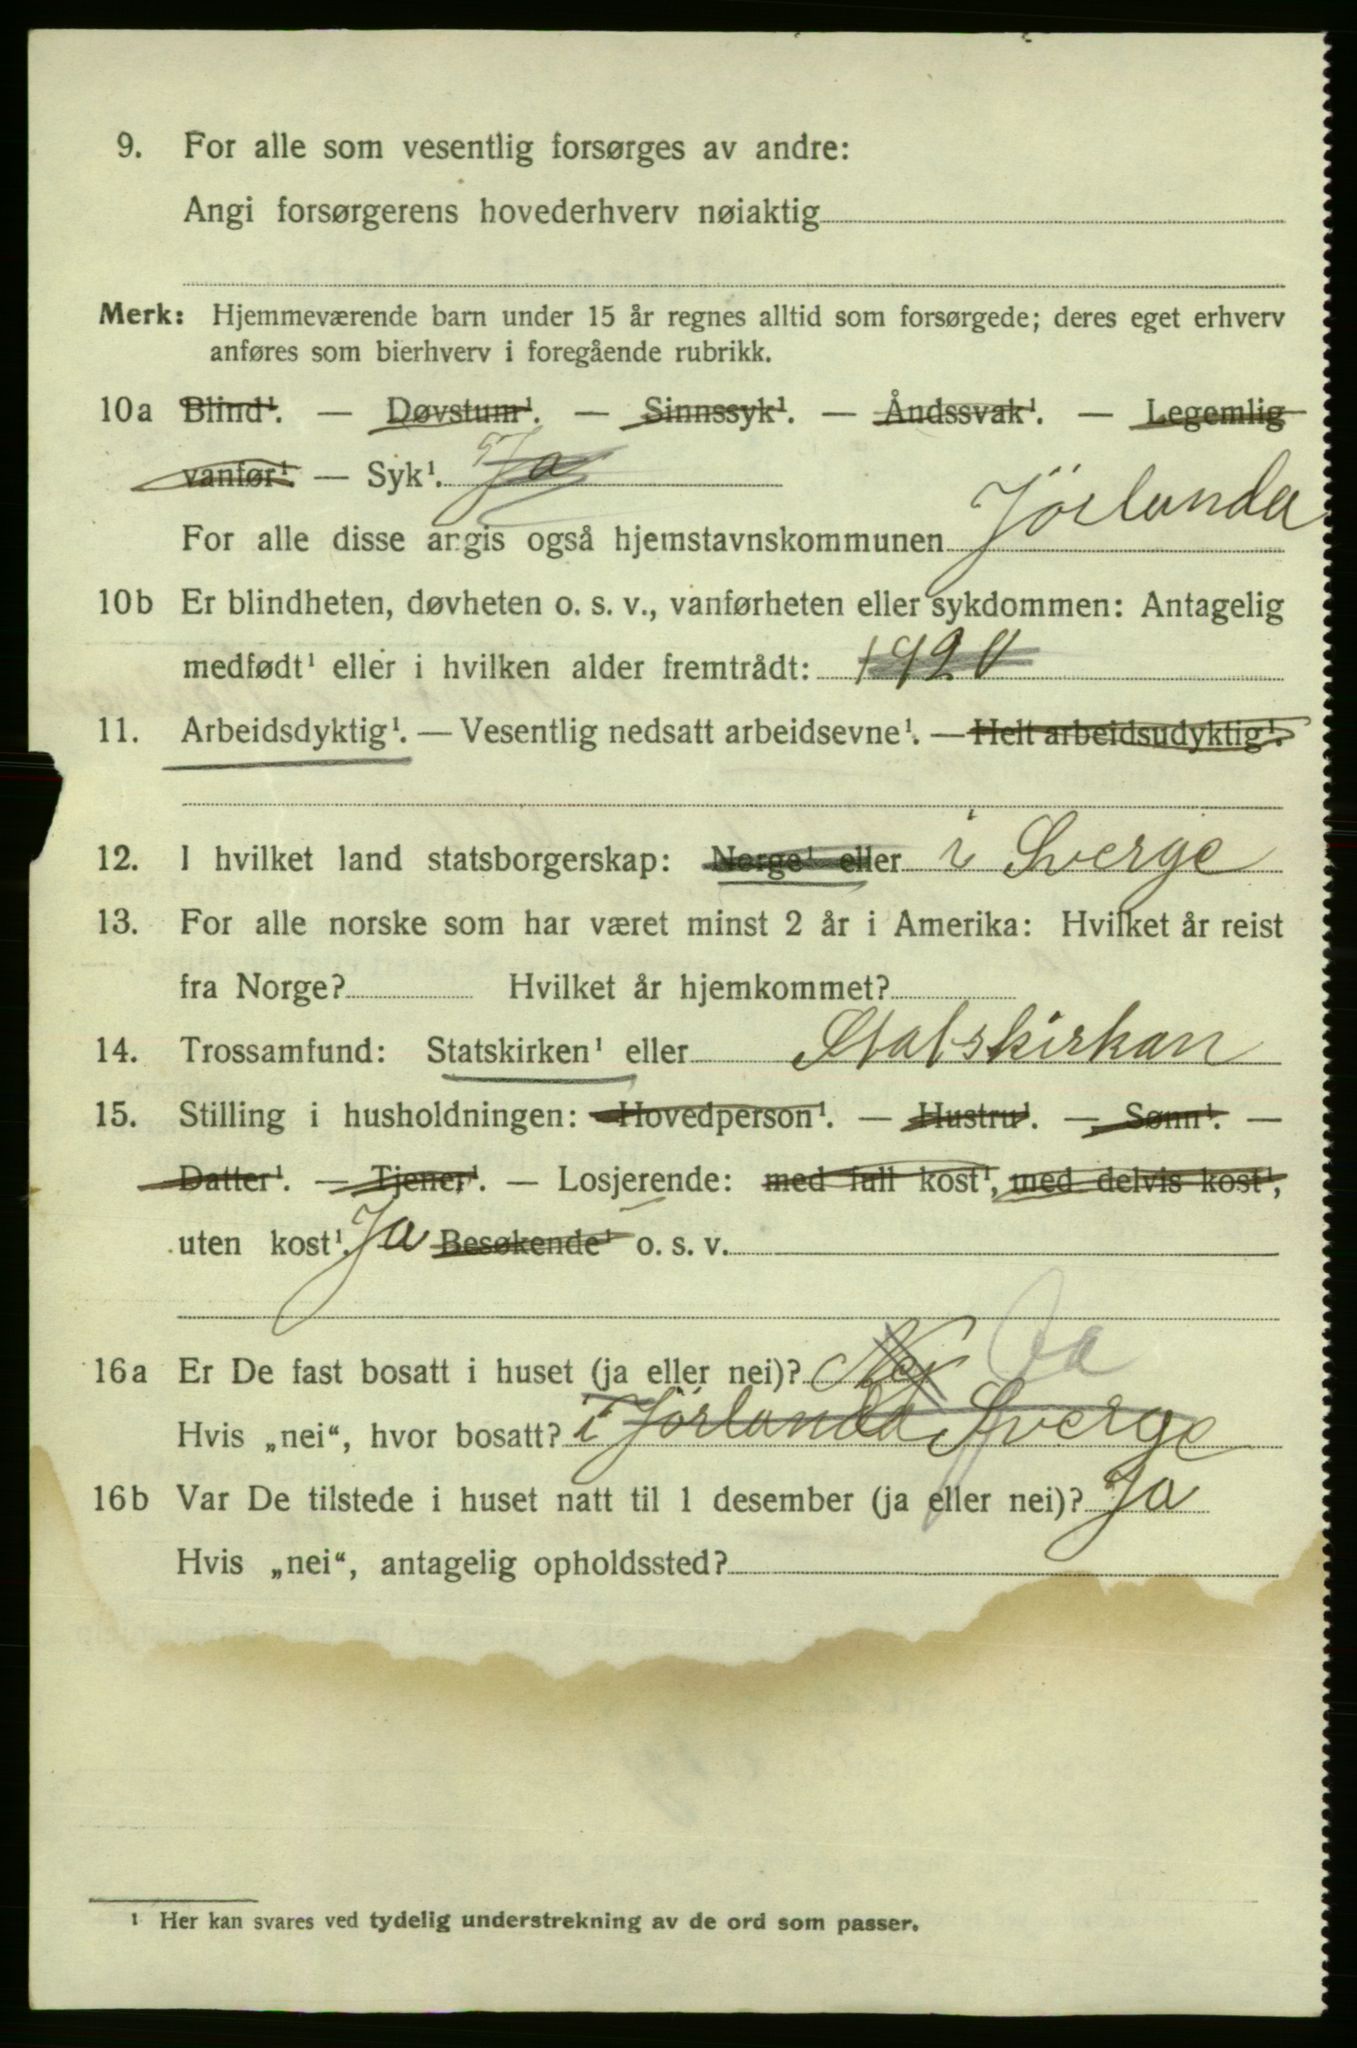 9. For alle som vesentlig forsørges av andre:
Angi forsørgerens hovederhverv nøiaktig
Merk: Hjemmeværende barn under 15 år regnes alltid som forsørgede; deres eget erhverv
anføres som bierhverv i foregående rubrikk.
10a Blind¹. — Døvstum¹. — Sinnssyk¹. — Åndssvak¹. — Legemlig
vanfør¹. — Syk¹. Ja
For alle disse angis også hjemstavnskommunen Jörlanda
10b Er blindheten, døvheten o. s. v., vanførheten eller sykdommen: Antagelig
medfødt¹ eller i hvilken alder fremtrådt: 1920
11. Arbeidsdyktig¹. — Vesentlig nedsatt arbeidsevne¹. — Helt arbeidsudyktig¹.
12. I hvilket land statsborgerskap: Norge¹ eller i Sverge
13. For alle norske som har været minst 2 år i Amerika: Hvilket år reist
fra Norge? Hvilket år hjemkommet?
14. Trossamfund: Statskirken¹ eller Statskirkan
15. Stilling i husholdningen: Hovedperson¹. — Hustru¹. — Sønn¹. —
Datter¹. — Tjener¹. — Losjerende: med full kost¹, med delvis kost¹,
uten kost¹. Ja Besøkende¹ o. s. v.
16a Er De fast bosatt i huset (ja eller nei)? Nej Ja
Hvis „nei“, hvor bosatt? i Jörlanda Sverge
16b Var De tilstede i huset natt til 1 desember (ja eller nei)? Ja
Hvis „nei“, antagelig opholdssted?
¹ Her kan svares ved tydelig understrekning av de ord som passer.